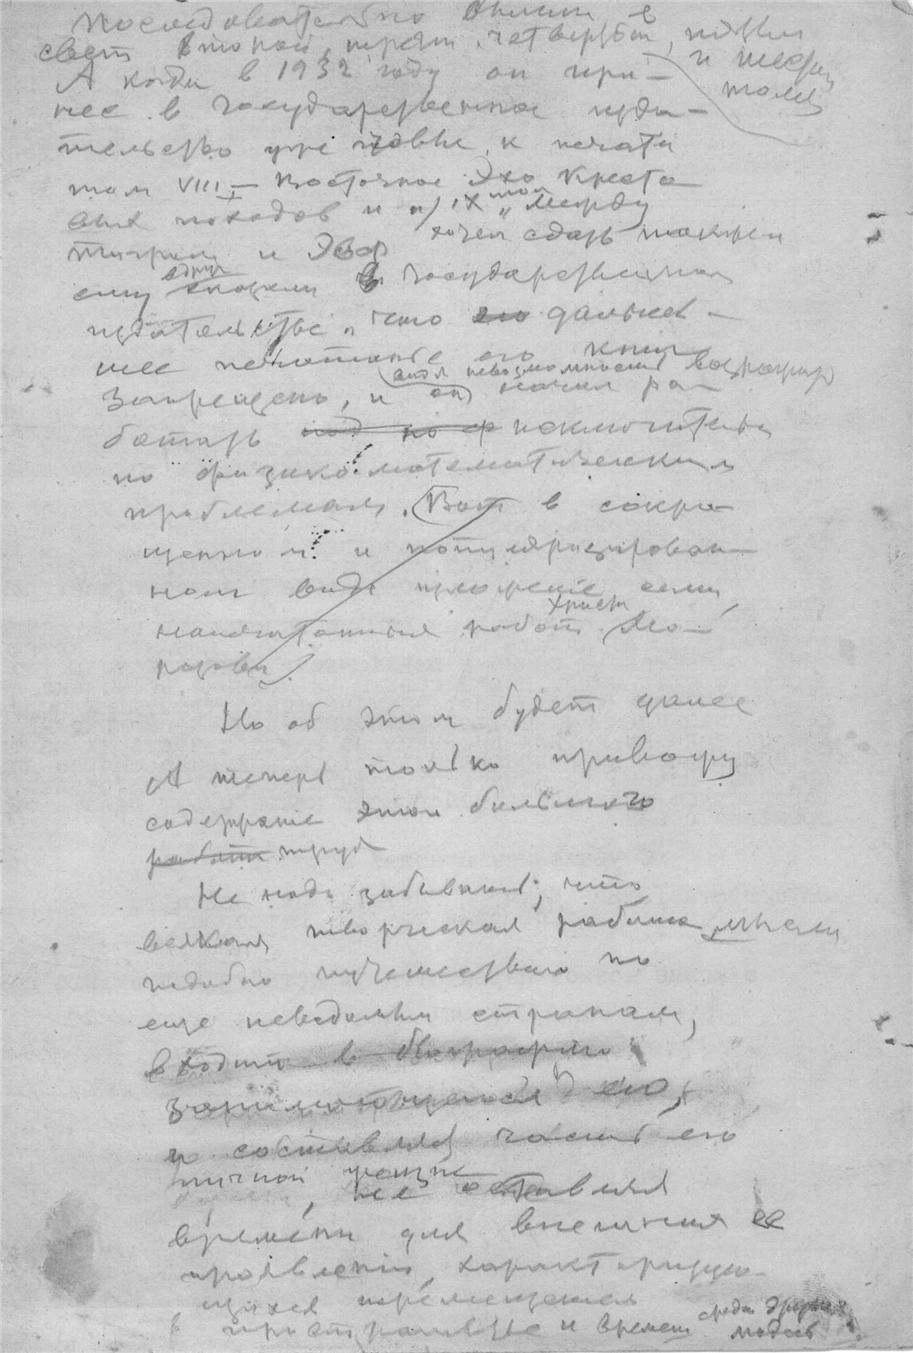 последовательно вышли в
свет второй, третий, четвертый, пятый
и шестой
томы
А когда в 1932 году он при-
нес в Государственное изда-
тельство уже готовые к печати
том VIII — Восточное Эхо Кресто-
вых походов и IX том „Между
Тигром и Эвф хотел сдать также
ему вдруг сказали в Государственном
издательстве, что его дальней-
шее печатание его книг
запрещено, и он видя невозможность возражать начал ра-
ботать исключительно
по физико-математическим
проблемам. Вот в сокра-
щенном и популяризирован-
ном виде изложение семи
напечатанных работ Христ Мо-
розова.
Но об этом будет далее
А теперь только привожу
содержание этого большого
работы труда
Не надо забывать, что
всякая творческая работа мысли
подобно путешествию по
еще неведомым странам,
входит в биографию
занимающегося ею,
и составляя часть его
личной жизни, не оставляя
времени для внешних ее
проявлений, характеризую-
щихся перемещением
в пространстве и времени среди других
людей